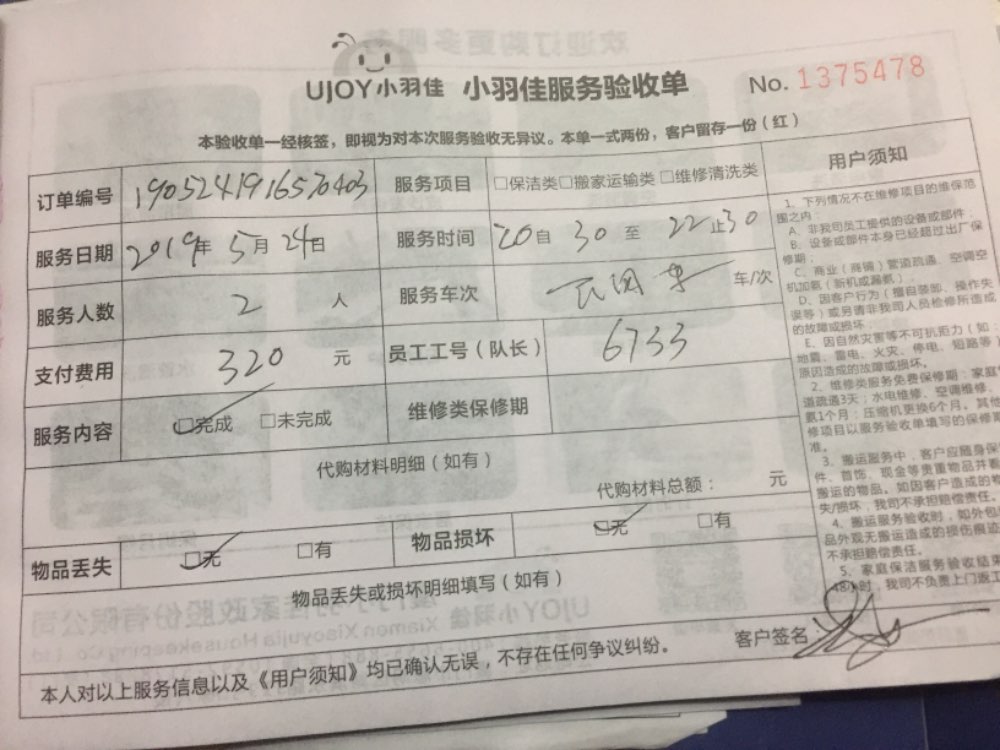 UJOY小羽佳 小羽佳服务验收单 No. 1375478
本验收单一经核签，即视为对本次服务验收无异议。本单一式两份，客户留存一份（红）
订单编号 1905241916570403 服务项目 □保洁类□搬家运输类□维修清洗类
服务日期 2019年 5月 24日 服务时间 20自 30至 22止30
服务人数 2 人 服务车次 车/次
支付费用 320 元 员工工号（队长） 6733
服务内容 □完成 □未完成 维修类保修期
代购材料明细（如有）
代购材料总额： 元
物品丢失 □无 □有 物品损坏 □无 □有
物品丢失或损坏明细填写（如有）
客户签名：
本人对以上服务信息以及《用户须知》均已确认无误，不存在任何争议纠纷。
用户须知
1、下列情况不在维修项目的维保范
围之内：
A、非我司员工提供的设备或部件；
B、设备或部件本身已经超过出厂保
修期；
C、商业（商铺）管道疏通、空调空
机加氨（新机或漏氨）；
D、因客户行为（擅自装卸、操作失
误等）或另请非我司人员检修所造成
的故障或损坏；
E、因自然灾害等不可抗拒力（如：
地震、雷电、火灾、停电、短路等）
原因造成的故障或损坏。
2、维修类服务免费保修期：家庭管
道疏通3天；水电维修、空调维修、
氨1个月；压缩机更换6个月。其他
修项目以服务验收单填写的保修期
准。
3、搬运服务中，客户应随身保
件、首饰、现金等贵重物品并看
搬运的物品。如因客户造成的物
失/损坏，我司不承担赔偿责任。
4、搬运服务验收时，如外包
品外观无搬运造成的损伤痕迹
不承担赔偿责任。
5、家庭保洁服务验收结束
48小时，我司不负责上门返工